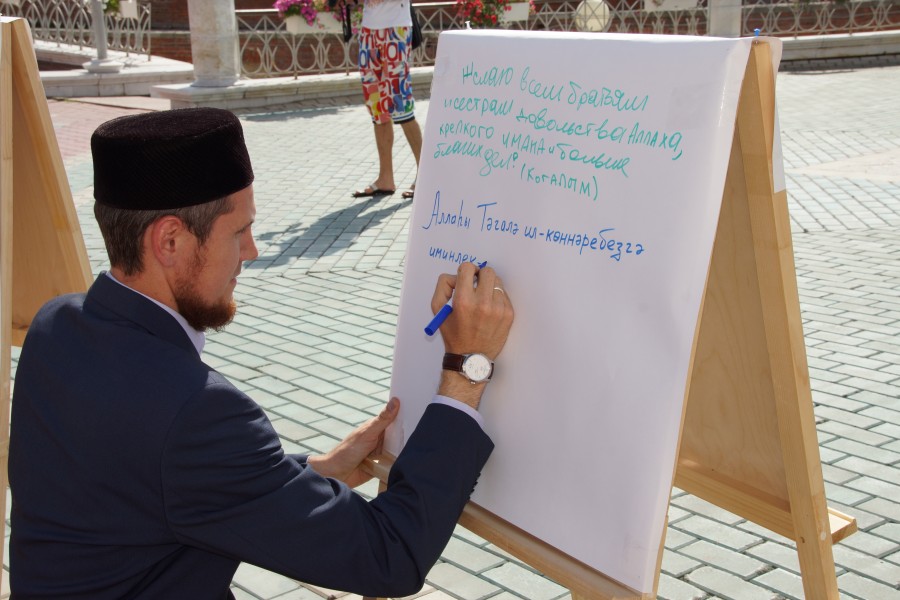 Желаю всем братьям
и сестрам довольства Аллаха,
крепкого имана и больше
благих дел. (Когалым)
Аллаһы Тәгалә ил-көннәребезгә
иминлек